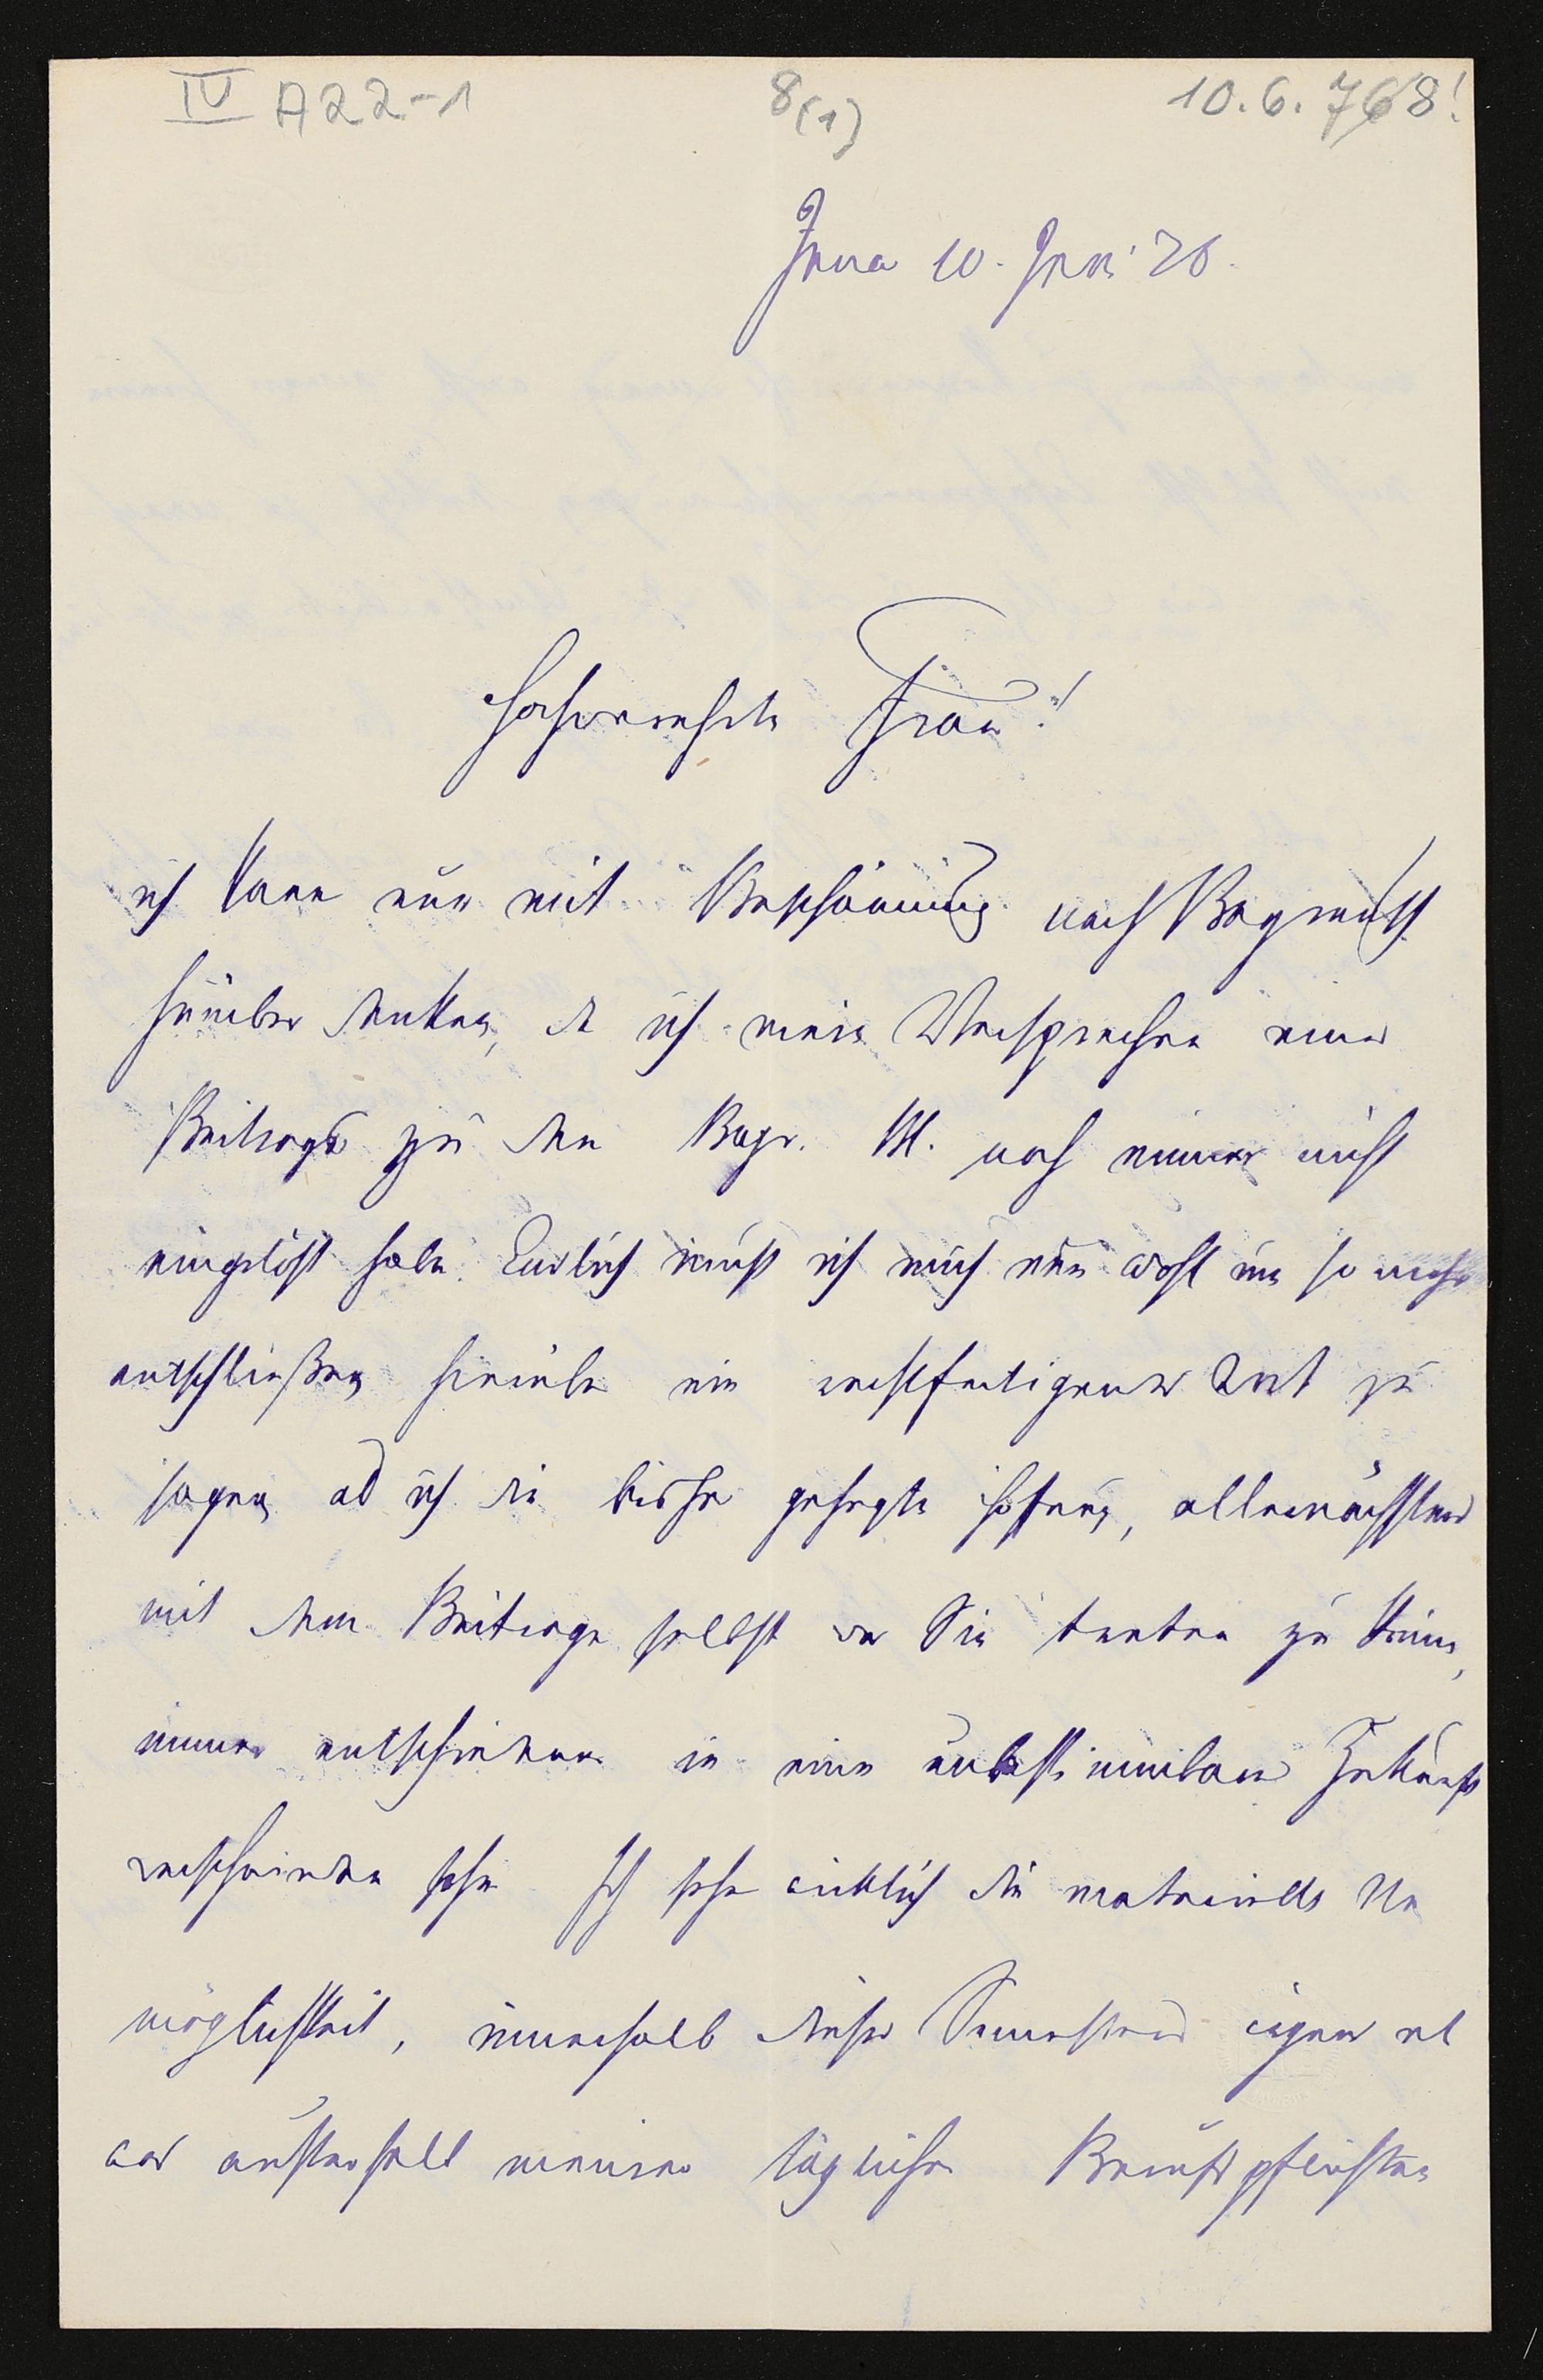 IV A22-1 8(1) 10.6.768!
Jena 10. Juni 78.
Hochverehrte Frau!
ich kann nur mit Beschämung nach Bayreuth
hinüber denken, da ich mein Versprechen eines
Beitrags zu den Bayr. Bl. noch immer nicht
eingelöst habe. Endlich muß ich mich nun wohl um so mehr
entschließen hierüber ein rechtfertigendes Wort zu
sagen als ich die bisher gehegte Hoffnung, allernächstens
mit dem Beitrage selbst vor Sie treten zu können,
immer entschiedener in eine unbestimmbare Zukunft
verschwinden sehe. Ich sehe wirklich die materielle Un
möglichkeit, innerhalb dieses Semesters irgend et
was außerhalb meiner täglichen Berufspflichten